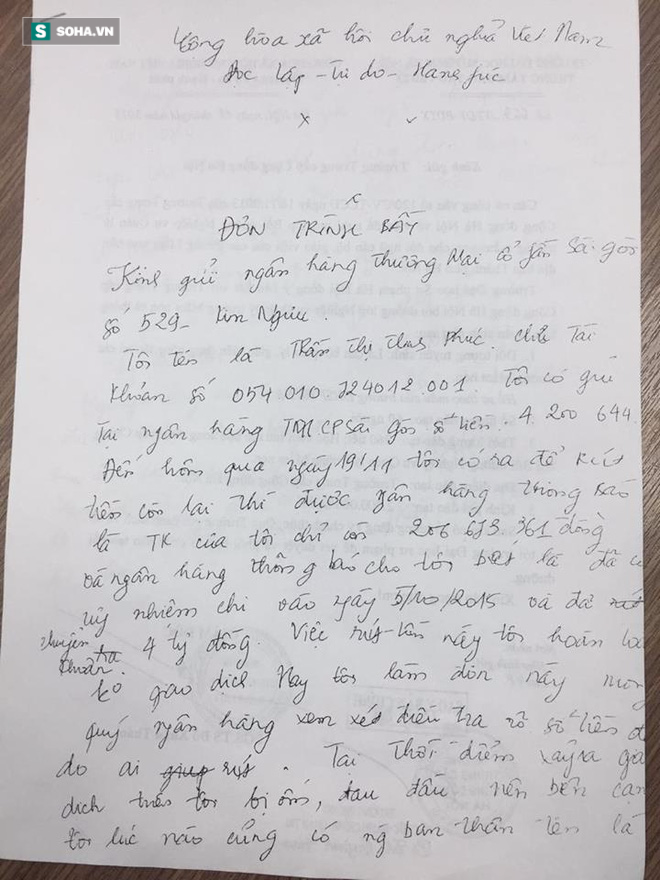 SOHA.VN
Cộng hòa xã hội chủ nghĩa Việt Nam
Độc lập - Tự do - Hạnh fúc
ĐƠN TRÌNH BẦY
Kính gửi ngân hàng thương Mại cổ fần Sài gòn
số 529 - Kim Ngưu.
Tôi tên là Trần Thị Thanh Phúc. chủ Tài
Khoản số 054 010. 724012. 001 Tôi có gửi
Tại ngân hàng TM CP Sài gòn số tiền. 4. 200 644.
Đến hôm qua ngày 19/11 tôi có ra để Rút
tiền còn lại thì được ngân hàng thông báo
là TK của tôi chỉ còn 206 673 361 đồng
và ngân hàng thông báo cho tôi biết là đã có
uỷ nhiệm chi vào ngày 5/10/2015 và đã rút
chuyển khoản. 4 tỷ đồng. Việc rút tiền này tôi hoàn toàn
ko giao dịch Nay tôi làm đơn này mong
quý ngân hàng xem xét điều tra rõ số tiền đó
do ai rút. Tại thời điểm xảy ra giao
dịch trên tôi bị ốm, đau đầu nên bên cạnh
tôi lúc nào cũng có ng bạn thân tên là